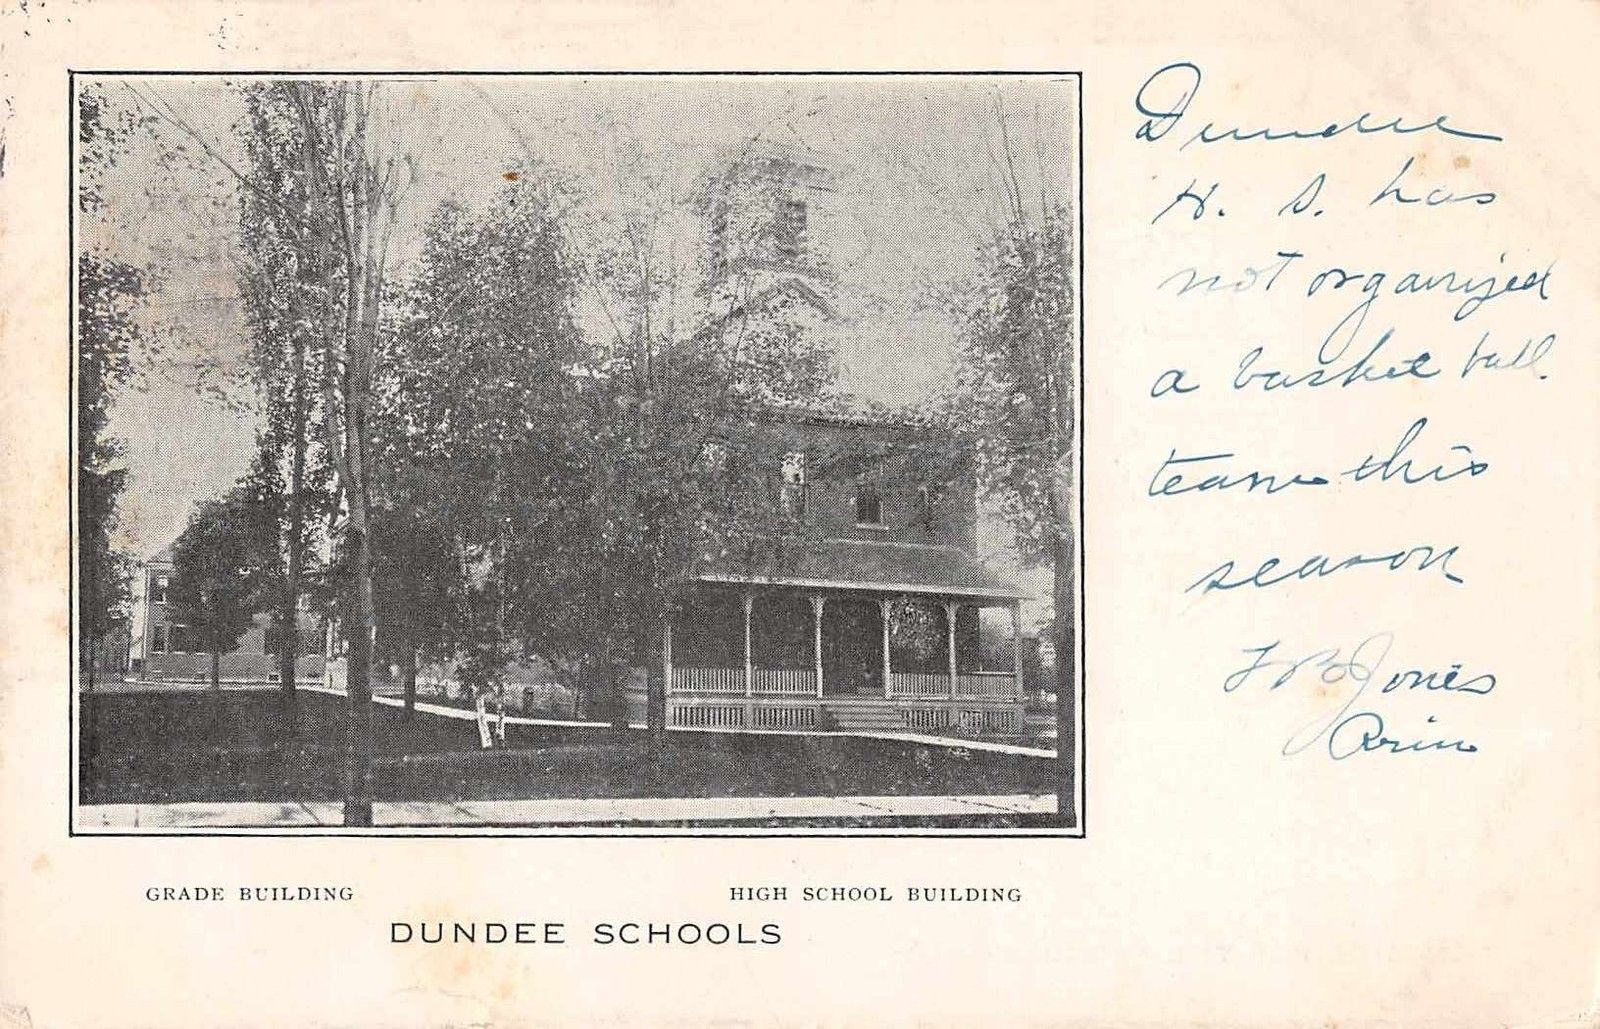 Dundee
H. S. has
not organized
a basket ball
team this
season
F B Jones
Prin
GRADE BUILDING
HIGH SCHOOL BUILDING
DUNDEE SCHOOLS